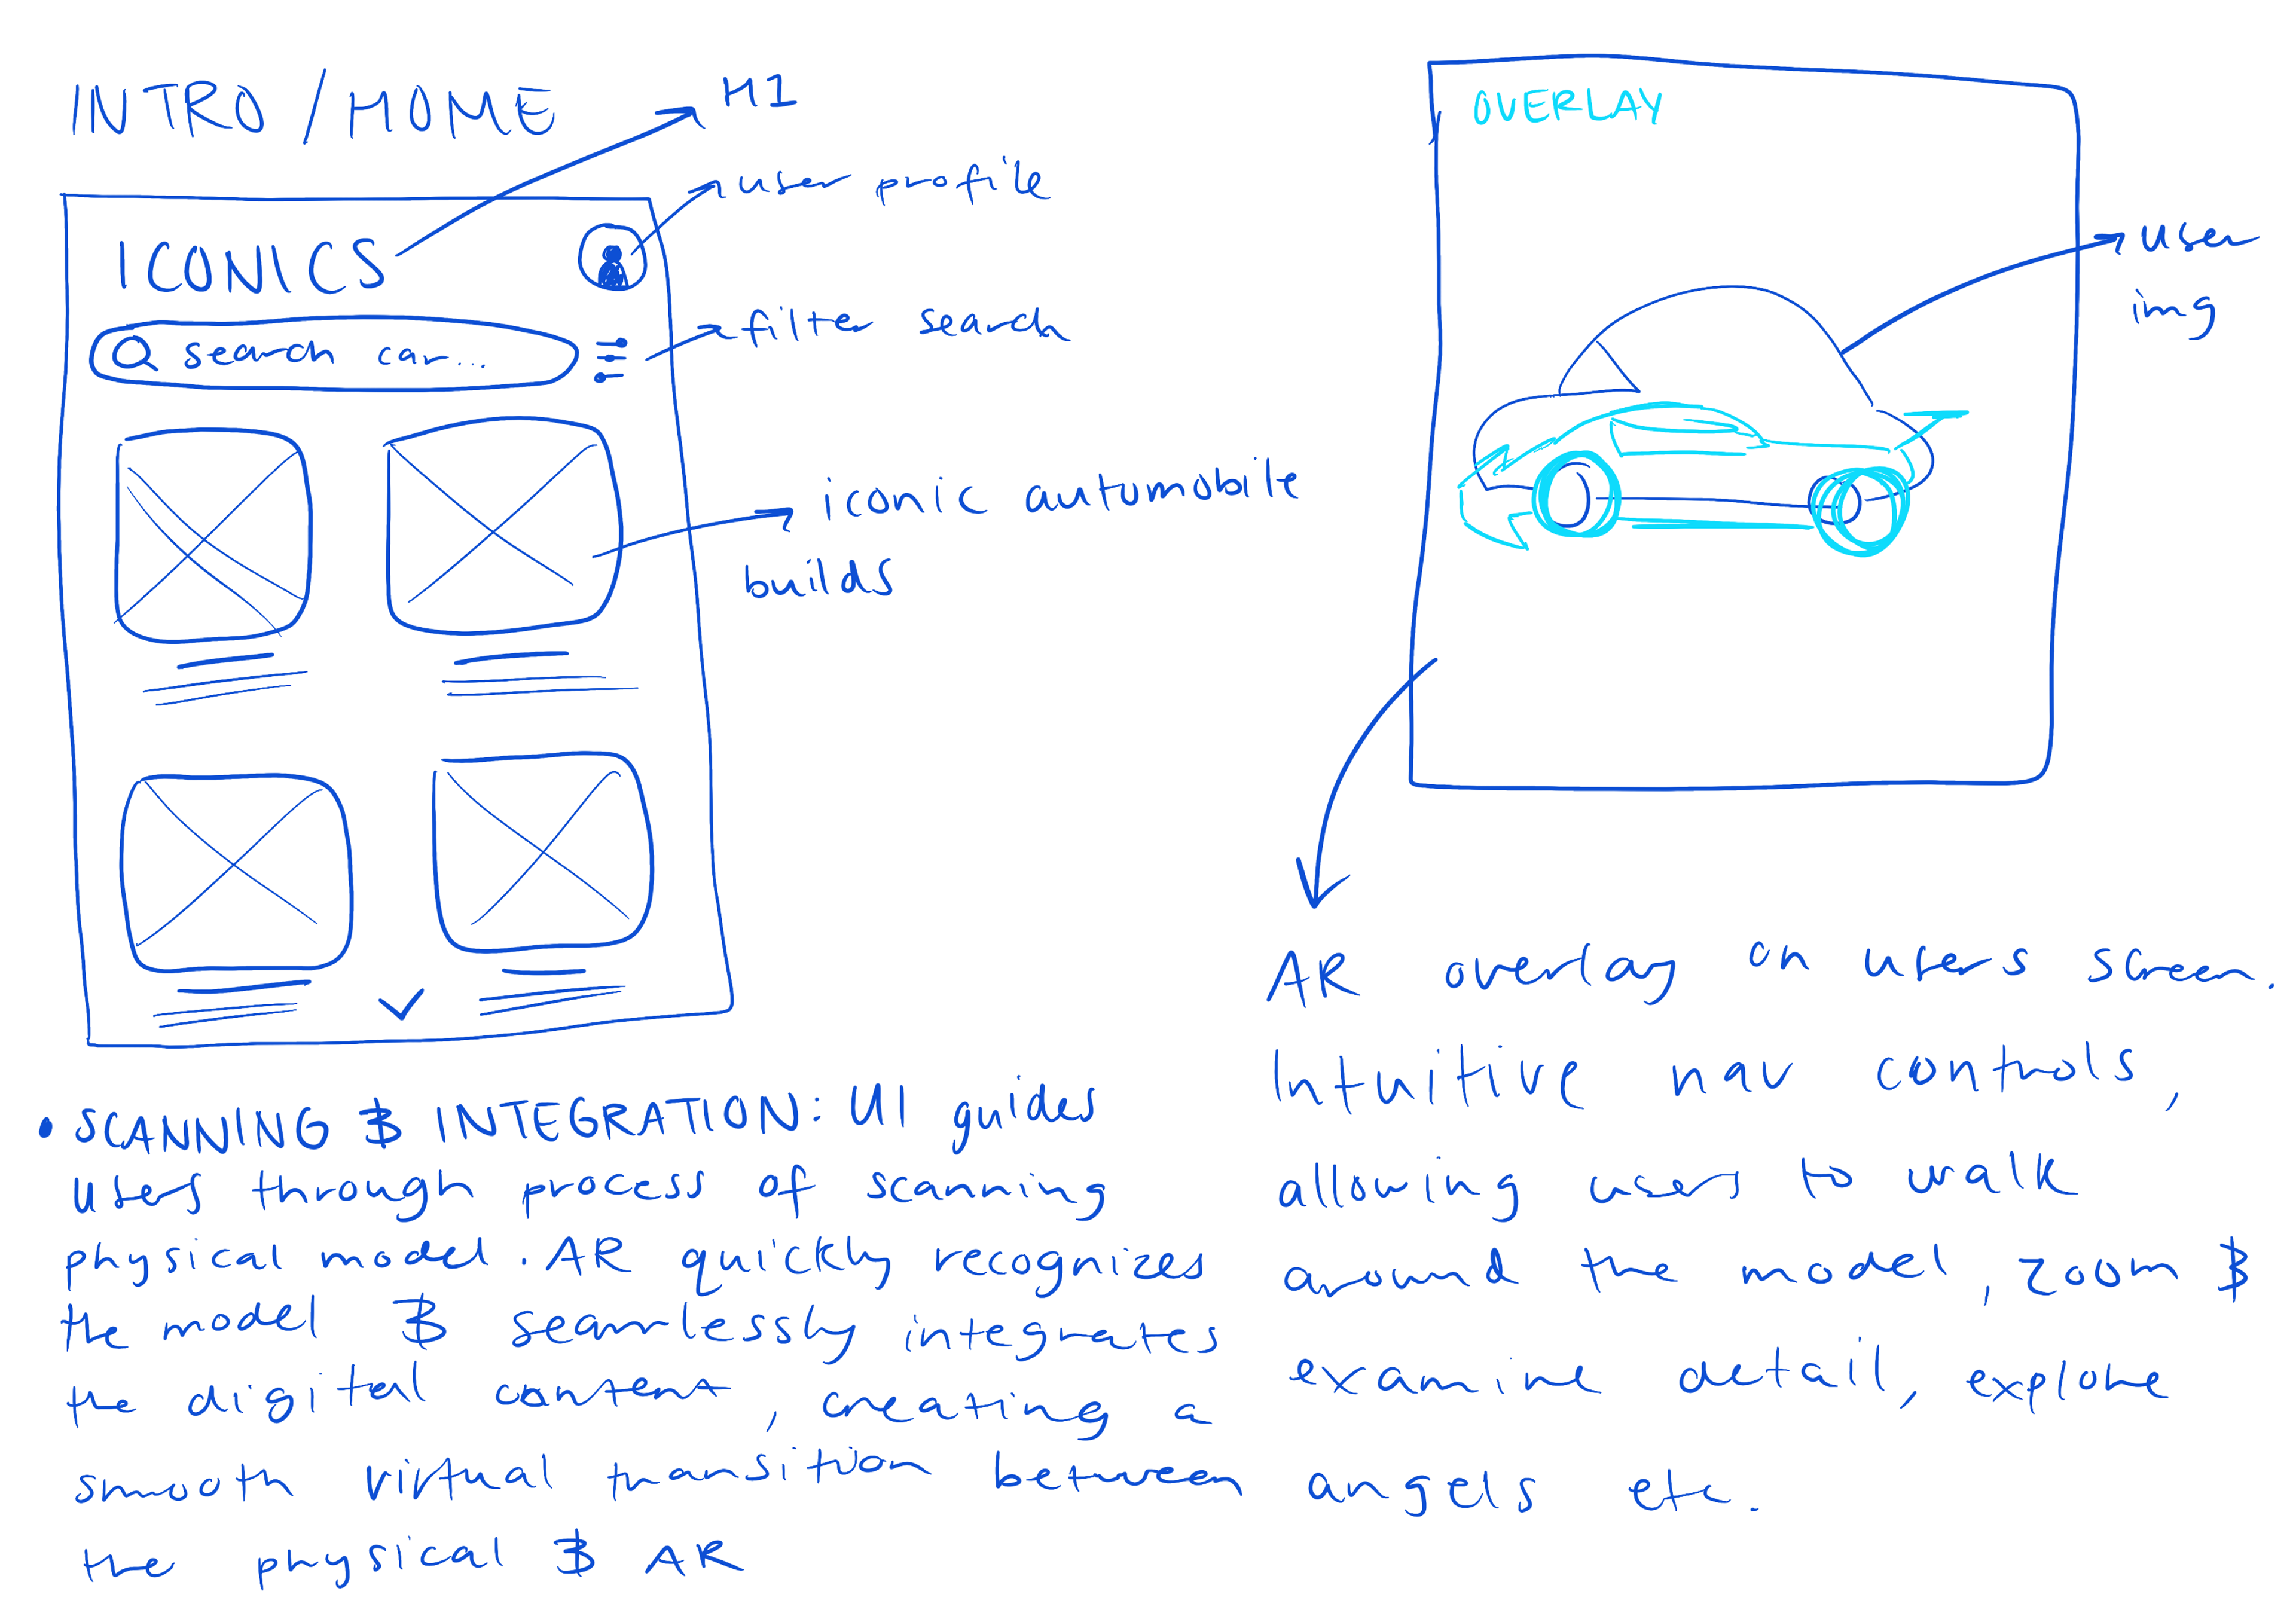 INTRO / HOME
H1
user profile
ICONICS
filter search
search car...
iconic automobile
builds
• SCANNING & INTEGRATION: UI guides
users through process of scanning
physical model. AR quickly recognizes
the model & seamlessly integrates
the digital content, creating a
smooth virtual transition between
the physical & AR
OVERLAY
user
img
AR overlay on users screen.
Intuitive nav controls,
allowing users to walk
around the model, zoom &
examine detail, explore
angels etc.